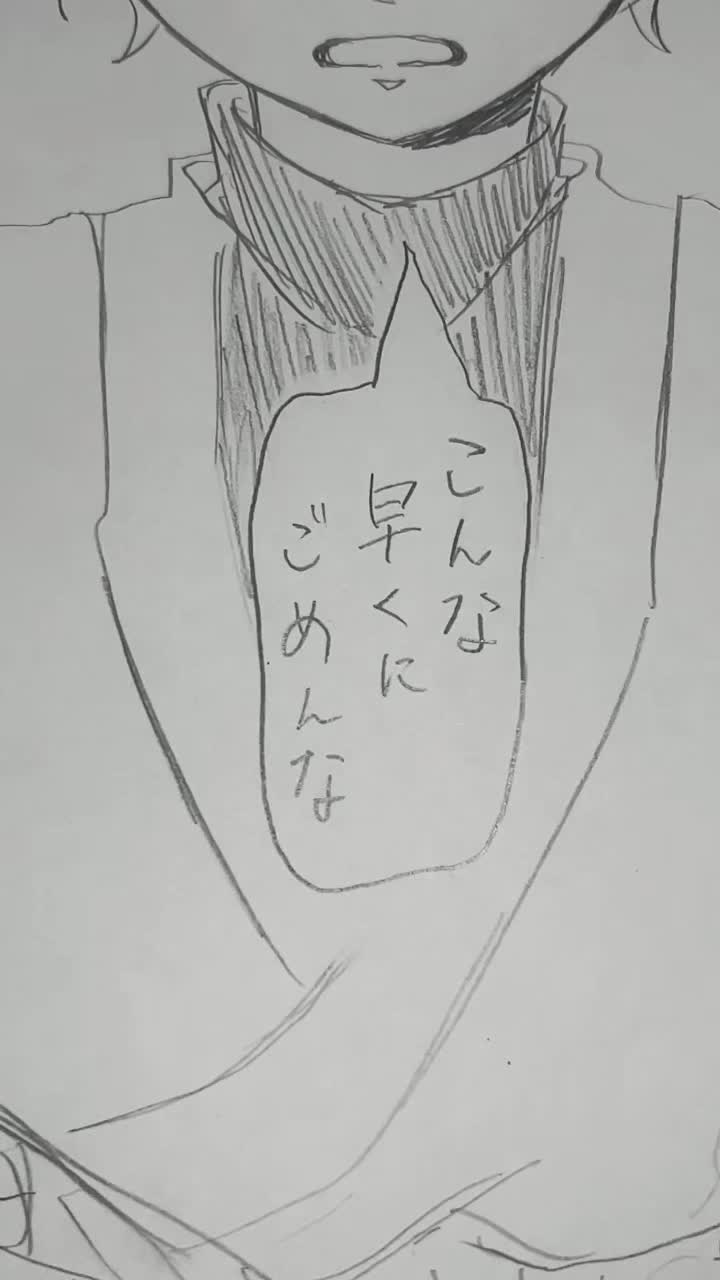 こんな
早くに
ごめんな